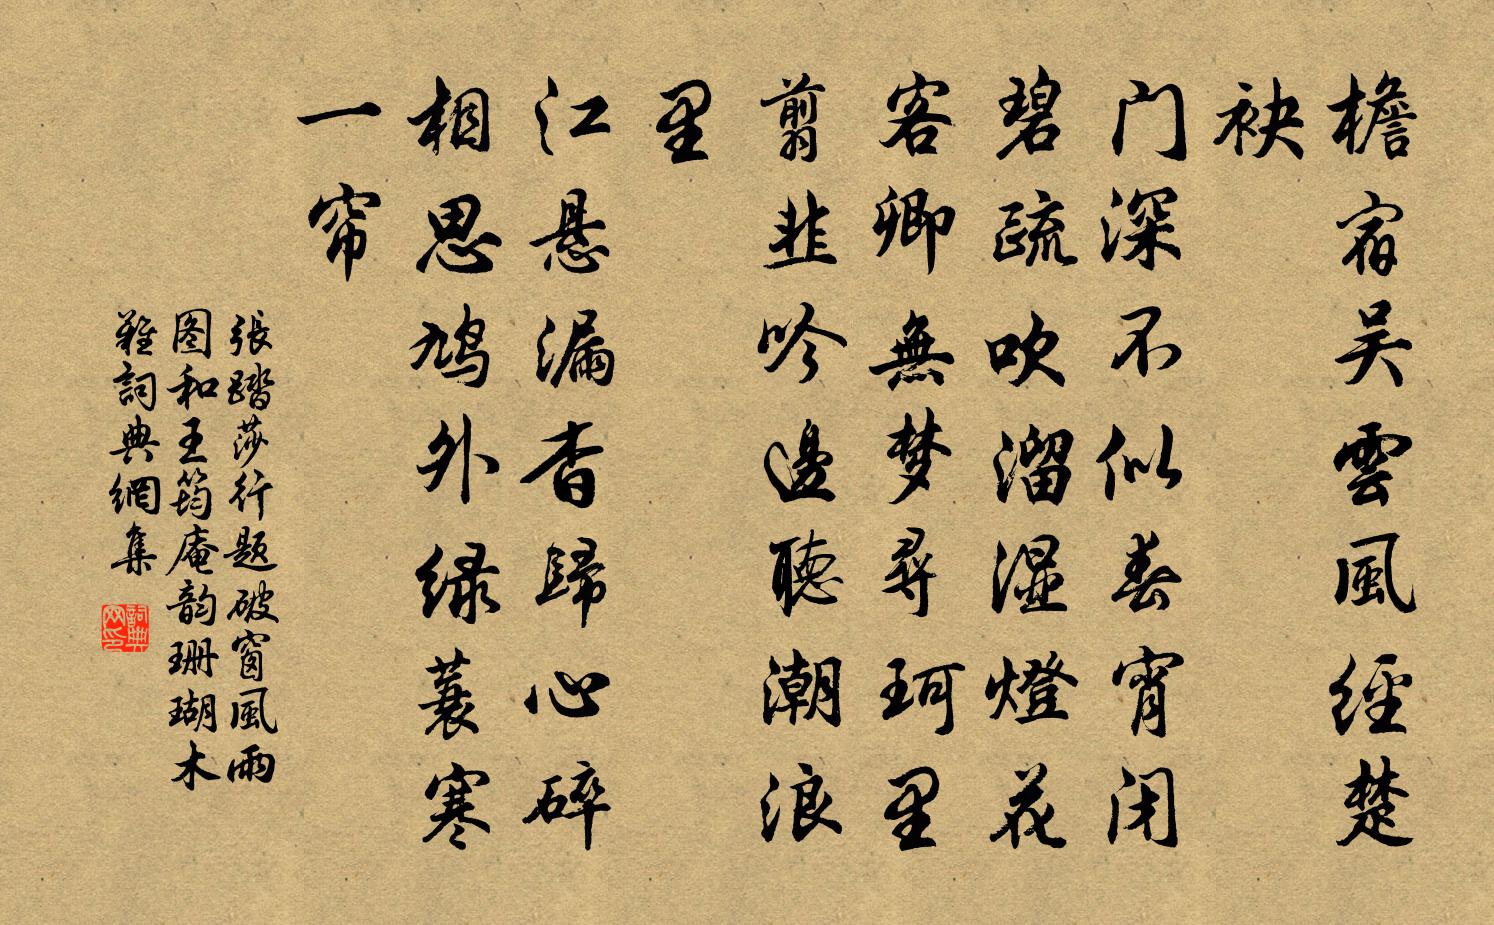 檐宿吴雲風经楚
袂
门深不似春宵闭
碧疏吹溜湿燈花
客卿無梦尋珂里
翦韭吟邊聽潮浪
里
江悬漏杳歸心碎
相思鸠外绿蓑寒
一帘
張踏莎行题破窗風雨
图和王筠庵韵珊瑚木
難詞典網集
詞典
网印